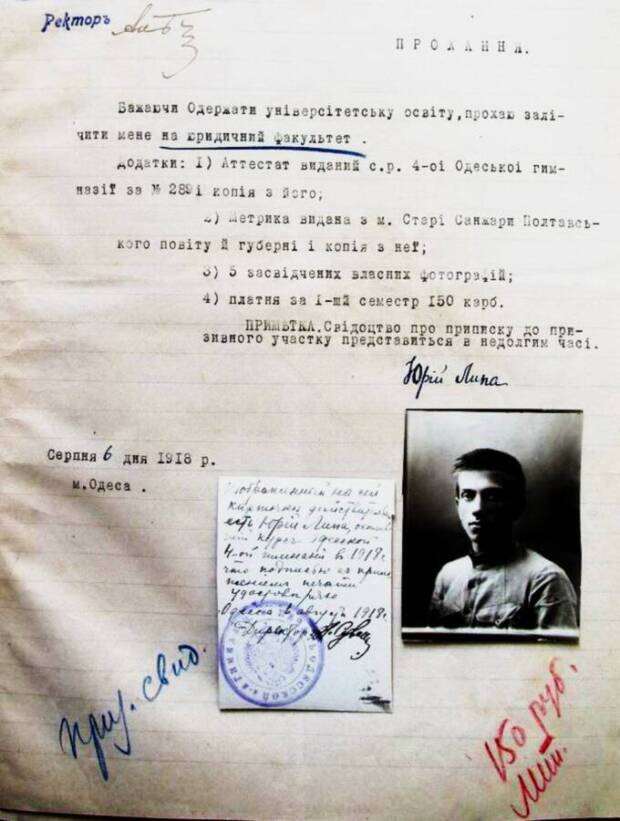 Ректоръ
ПРОХАННЯ.
Бажаючи Одержати університетську освіту,прохаю залі-
чити мене на юридичний факультет .
Додатки: I) Аттестат виданий с.р. 4-ої Одеської гим-
назії за № 289і копія з його;
2) Метрика видана з м. Старі Санжари Полтавсь-
кого повіту й губерні і копія з неї;
3) 5 засвідчених власних фотографій;
4) платня за I-ший семестр I50 карб.
ПРИМѢТКА.Свідоцтво про приписку до при-
зивного участку представиться в недолгим часі.
Юрій Липа
Серпня 6 дня 1918 р.
м.Одеса .
Изображенный на сей
карточке действитель
есть Юрій Липа,
курс одесской
4-ой гимназии в 1918 г
что подписью с прило
жением печати
удостоверяю
Одесса 6 август 1918 г.
Директор
приз. свид.
150 руб.
Лип.